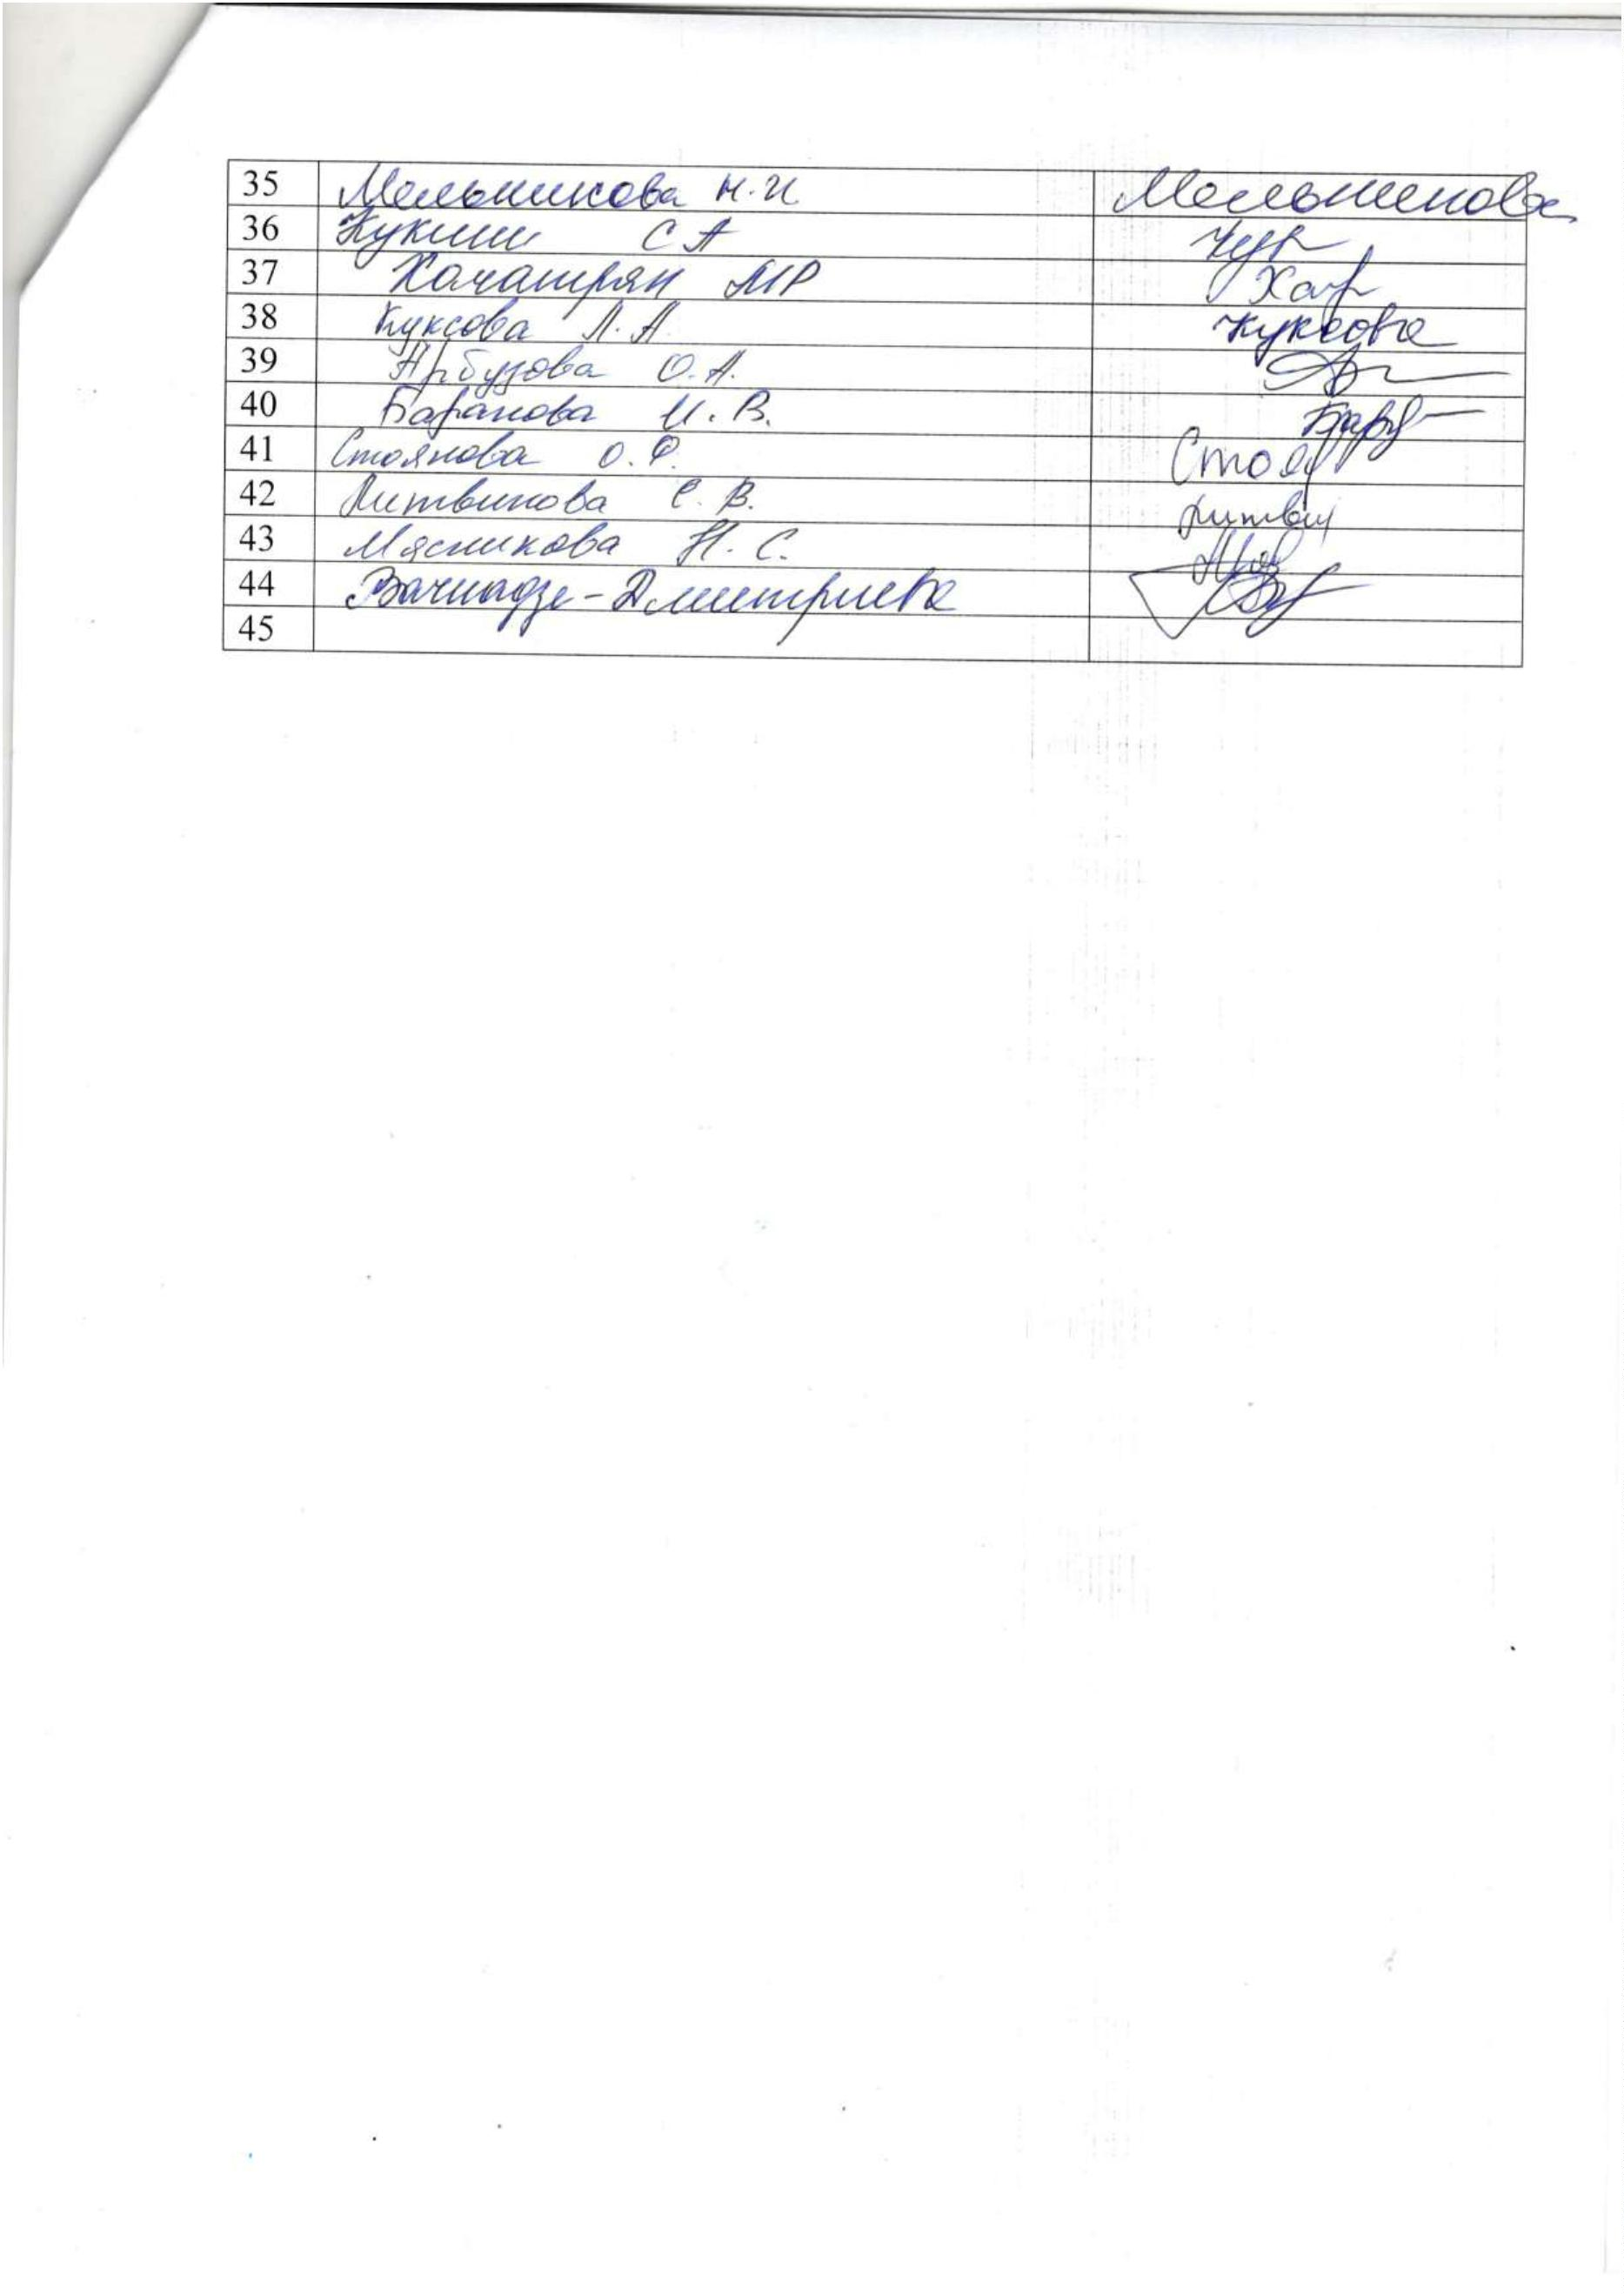 35 Мельникова Н.И Мельникова
36 Кукиш С А
37 Хачатрян МР Хач
38 Куксова Л.А Куксова
39 Арбузова О.А.
40 Баранова И.В.
41 Стоянова О.Ф. Стоя
42 Литвинова Е.В. Литвин
43 Мясникова Н.С.
44 Вачнадзе-Дмитриева
45